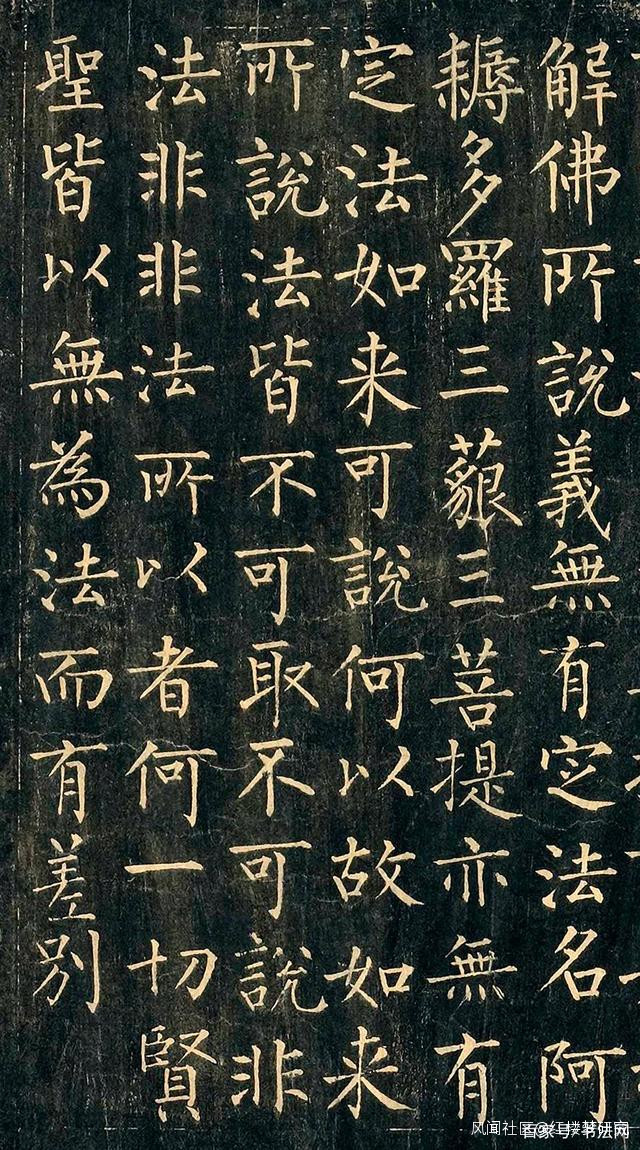 解佛所說義無有定法名阿
耨多羅三藐三菩提亦無有
定法如来可說何以故如来
所說法皆不可取不可說非
法非非法所以者何一切賢
聖皆以無為法而有差別
风闻社区
书法网